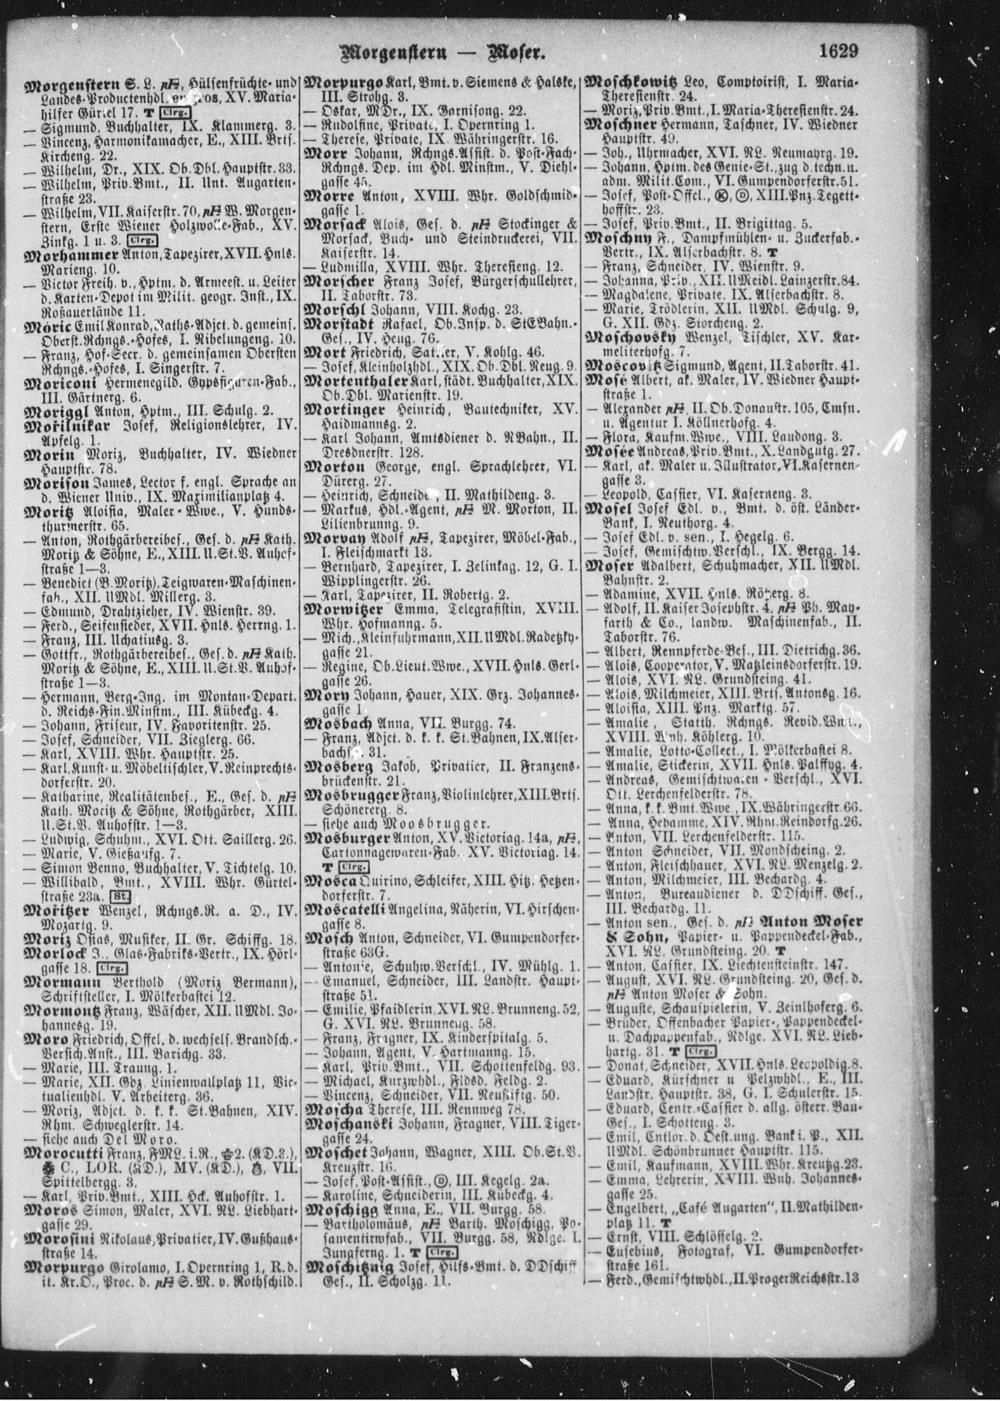 Morgenstern — Moser. 1629
Morgenstern S. L. pH, Hülsenfrüchte- und
Landes-Productenhdl. en gros, XV. Maria-
hilfer Gürtel 17. T Clrg.
— Sigmund, Buchhalter, IX. Klammerg. 3.
— Vincenz, Harmonikamacher, E., XIII. Brts.
Kircheng. 22.
— Wilhelm, Dr., XIX. Ob. Dbl. Hauptstr. 33.
— Wilhelm, Priv. Bmt., II. Unt. Augarten-
straße 23.
— Wilhelm, VII. Kaiserstr. 70, pH W. Morgen-
stern, Erste Wiener Holzwolle-Fab., XV.
Zinkg. 1 u. 3. Clrg.
Morhammer Anton, Tapezirer, XVII. Hnls.
Marieng. 10.
— Victor Freih. v., Hptm. d. Armeest. u. Leiter
d. Karten-Depot im Milit. geogr. Inst., IX.
Roßauerlände 11.
Móric Emil Konrad, Raths-Adjct. d. gemeins.
Oberst. Rchngs.-Hofes, I. Nibelungeng. 10.
— Franz, Hof-Secr. d. gemeinsamen Obersten
Rchngs.-Hofes, I. Singerstr. 7.
Moriconi Hermenegild, Gypsfiguren-Fab.,
III. Gärtnerg. 6.
Moriggl Anton, Hptm., III. Schulg. 2.
Morilnikar Josef, Religionslehrer, IV.
Apfelg. 1.
Morin Moriz, Buchhalter, IV. Wiedner
Hauptstr. 78.
Morison James, Lector f. engl. Sprache an
d. Wiener Univ., IX. Maximilianplatz 4.
Moritz Aloisia, Maler-Wwe., V. Hunds-
thurmerstr. 65.
— Anton, Rothgärbereibes., Ges. d. pH Kath.
Moritz & Söhne, E., XIII. U. St. V. Auhof-
straße 1—3.
— Benedict (B. Moritz), Teigwaren-Maschinen-
fab., XII. UMdl. Millerg. 3.
— Edmund, Drahtzieher, IV. Wienstr. 39.
— Ferd., Seifensieder, XVII. Hnls. Herrng. 1.
— Franz, III. Uchatiusg. 3.
— Gottfr., Rothgärbereibes., Ges. d. pH Kath.
Moritz & Söhne, E., XIII. U. St. V. Auhof-
straße 1—3.
— Hermann, Berg-Ing. im Montan-Depart.
d. Reichs-Fin. Minstm., III. Kübeckg. 4.
— Johann, Friseur, IV. Favoritenstr. 25.
— Josef, Schneider, VII. Zieglerg. 66.
— Karl, XVIII. Whr. Hauptstr. 25.
— Karl, Kunst- u. Möbeltischler, V. Reinprechts-
dorferstr. 20.
— Katharine, Realitätenbes., E., Ges. d. pH
Kath. Moritz & Söhne, Rothgärber, XIII.
U. St. V. Auhofstr. 1—3.
— Ludwig, Schuhm., XVI. Ott. Saillerg. 26.
— Marie, V. Gießaufg. 7.
— Simon Benno, Buchhalter, V. Tichtelg. 10.
— Willibald, Bmt., XVIII. Whr. Gürtel-
straße 23a. St.
Moritzer Wenzel, Rchngs. R. a. D., IV.
Mozartg. 9.
Moriz Osias, Musiker, II. Gr. Schiffg. 18.
Morlock J., Glas-Fabriks-Vertr., IX. Hörl-
gasse 18. Clrg.
Mormann Berthold (Moriz Bermann),
Schriftsteller, I. Mölkerbastei 12.
Mormontz Franz, Wäscher, XII. UMdl. Jo-
hannesg. 19.
Moro Friedrich, Offcl. d. wechself. Brandsch.-
Versich. Anst., III. Barichg. 33.
— Marie, III. Traung. 1.
— Marie, XII. Gdz. Linienwallplatz 11, Vic-
tualienhdl. V. Arbeiterg. 36.
— Moriz, Adjct. d. k. k. St. Bahnen, XIV.
Rhm. Schweglerstr. 14.
— siehe auch Del Moro.
Morocutti Franz, FML. i. R., 2. (KD.2.),
C., LOR. (KD.), MV. (KD.), VII.
Spittelbergg. 3.
— Karl, Priv. Bmt., XIII. Hck. Auhofstr. 1.
Moros Simon, Maler, XVI. NL. Liebhart-
gasse 29.
Morosini Nikolaus, Privatier, IV. Gußhaus-
straße 14.
Morpurgo Girolamo, I. Opernring 1, R. d.
it. Kr. O., Proc. d. pH S. M. v. Rothschild.
Morpurgo Karl, Bmt. v. Siemens & Halske,
III. Strohg. 3.
— Oskar, MDr., IX. Garnisong. 22.
— Rudolfine, Private, I. Opernring 1.
— Therese, Private, IX. Währingerstr. 16.
Morr Johann, Rchngs. Assist. d. Post-Fach-
Rchngs. Dep. im Hdl. Minstm., V. Diehl-
gasse 45.
Morre Anton, XVIII. Whr. Goldschmid-
gasse 1.
Morsack Alois, Ges. d. pH Stockinger &
Morsack, Buch- und Steindruckerei, VII.
Kaiserstr. 14.
— Ludmilla, XVIII. Whr. Theresieng. 12.
Morscher Franz Josef, Bürgerschullehrer,
II. Taborstr. 73.
Morschl Johann, VIII. Kochg. 23.
Morstadt Rafael, Ob. Insp. d. StEBahn.-
Ges., IV. Heug. 76.
Mort Friedrich, Sattler, V. Kohlg. 46.
— Josef, Kleinholzhdl., XIX. Ob. Dbl. Neug. 9.
Mortenthaler Karl, städt. Buchhalter, XIX.
Ob. Dbl. Marienstr. 19.
Mortinger Heinrich, Bautechniker, XV.
Haidmannsg. 2.
— Karl Johann, Amtsdiener d. NBahn., II.
Dresdnerstr. 128.
Morton George, engl. Sprachlehrer, VI.
Dürerg. 27.
— Heinrich, Schneider, II. Mathildeng. 3.
— Markus, Hdl.-Agent, pH M. Morton, II.
Lilienbrunng. 9.
Morvay Adolf pH, Tapezirer, Möbel-Fab.,
I. Fleischmarkt 13.
— Bernhard, Tapezirer, I. Zelinkag. 12, G. I.
Wipplingerstr. 26.
— Karl, Tapezirer, II. Robertg. 2.
Morwitzer Emma, Telegrafistin, XVIII.
Whr. Hofmanng. 5.
— Mich., Kleinfuhrmann, XII. UMdl. Radetzky-
gasse 21.
— Regine, Ob. Lieut. Wwe., XVII. Hnls. Gerl-
gasse 26.
Mory Johann, Hauer, XIX. Grz. Johannes-
gasse 1.
Mosbach Anna, VII. Burgg. 74.
— Franz, Adjct. d. k. k. St. Bahnen, IX. Alser-
bachstr. 31.
Mosberg Jakob, Privatier, II. Franzens-
brückenstr. 21.
Mosbrugger Franz, Violinlehrer, XIII. Brts.
Schönererg. 8.
— siehe auch Moosbrugger.
Mosburger Anton, XV. Victoriag. 14a, pH,
Cartonnagewaren-Fab. XV. Victoriag. 14.
T Clrg.
Mosca Quirino, Schleifer, XIII. Hitz. Hetzen-
dorferstr. 7.
Moscatelli Angelina, Näherin, VI. Hirschen-
gasse 8.
Mosch Anton, Schneider, VI. Gumpendorfer-
straße 63G.
— Antonie, Schuhw. Verschl., IV. Mühlg. 1.
— Emanuel, Schneider, III. Landstr. Haupt-
straße 51.
— Emilie, Pfaidlerin, XVI. NL. Brunneng. 52,
G. XVI. NL. Brunneng. 58.
— Franz, Fragner, IX. Kinderspitalg. 5.
— Johann, Agent, V. Hartmanng. 15.
— Karl, Priv. Bmt., VII. Schottenfeldg. 93.
— Michael, Kurzwhdl., Fldsd. Feldg. 2.
— Vincenz, Schneider, VII. Neustiftg. 50.
Moscha Therese, III. Rennweg 78.
Moschanski Johann, Fragner, VIII. Tiger-
gasse 24.
Moschet Johann, Wagner, XIII. Ob. St. V.
Kreuzstr. 16.
— Josef, Post-Assist., III. Kegelg. 2a.
— Karoline, Schneiderin, III. Kübeckg. 4.
Moschigg Anna, E., VII. Burgg. 58.
— Bartholomäus, pH Barth. Moschigg, Po-
samentirwfab., VII. Burgg. 58, Ndlge. I.
Jungferng. 1. T Clrg.
Moschitznig Josef, Hilfs-Bmt. d. DDschiff
Ges., II. Scholzg. 11.
Moschkowitz Leo, Comptoirist, I. Maria-
Theresienstr. 24.
— Moriz, Priv. Bmt., I. Maria-Theresienstr. 24.
Moschner Hermann, Taschner, IV. Wiedner
Hauptstr. 49.
— Joh., Uhrmacher, XVI. NL. Neumayrg. 19.
— Johann, Hptm. des Genie-St., zug. d. techn. u.
adm. Milit. Com., VI. Gumpendorferstr. 51.
— Josef, Post-Offcl., XIII. Pnz. Tegett-
hoffstr. 23.
— Josef, Priv. Bmt., II. Brigittag. 5.
Moschny F., Dampfmühlen- u. Zuckerfab.-
Vertr., IX. Alserbachstr. 8. T
— Franz, Schneider, IV. Wienstr. 9.
— Johanna, Priv., XII. UMeidl. Lainzerstr. 84.
— Magdalene, Private, IX. Alserbachstr. 8.
— Marie, Trödlerin, XII. UMdl. Schulg. 9,
G. XII. Gdz. Storcheng. 2.
Moschovsky Wenzel, Tischler, XV. Kar-
meliterhofg. 7.
Moscovitz Sigmund, Agent, II. Taborstr. 41.
Mosé Albert, ak. Maler, IV. Wiedner Haupt-
straße 1.
— Alexander pH, II. Ob. Donaustr. 105, Cmsn.
u. Agentur I. Köllnerhofg. 4.
— Flora, Kaufm. Wwe., VIII. Laudong. 3.
Mosée Andreas, Priv. Bmt., X. Landgutg. 27.
— Karl, ak. Maler u. Illustrator, VI. Kasernen-
gasse 3.
— Leopold, Cassier, VI. Kaserneng. 3.
Mosel Josef Edl. v., Bmt. d. öst. Länder-
Bank, I. Neuthorg. 4.
— Josef Edl. v. sen., I. Hegelg. 6.
— Josef, Gemischtw. Verschl., IX. Bergg. 14.
Moser Adalbert, Schuhmacher, XII. UMdl.
Bahnstr. 2.
— Adamine, XVII. Hnls. Rötzerg. 8.
— Adolf, II. Kaiser Josephstr. 4, pH Ph. May-
farth & Co., landw. Maschinenfab., II.
Taborstr. 76.
— Albert, Rennpferde-Bes., III. Dietrichg. 36.
— Alois, Cooperator, V. Matzleinsdorferstr. 19.
— Alois, XVI. NL. Grundsteing. 41.
— Alois, Milchmeier, XIII. Brts. Antonsg. 16.
— Aloisia, XIII. Pnz. Marktg. 57.
— Amalie, Statth. Rchngs. Revid. Wwe.,
XVIII. Wnh. Köhlerg. 10.
— Amalie, Lotto-Collect., I. Mölkerbastei 8.
— Amalie, Stickerin, XVII. Hnls. Palffyg. 4.
— Andreas, Gemischtwaren-Verschl., XVI.
Ott. Lerchenfelderstr. 78.
— Anna, k. k. Bmt. Wwe., IX. Währingerstr. 66.
— Anna, Hebamme, XIV. Rhm. Reindorfg. 26.
— Anton, VII. Lerchenfelderstr. 115.
— Anton Schneider, VII. Mondscheing. 2.
— Anton, Fleischhauer, XVI. NL. Menzelg. 2.
— Anton, Milchmeier, III. Bechardg. 4.
— Anton, Bureaudiener d. DDschiff. Ges.,
III. Bechardg. 11.
— Anton sen., Ges. d. pH Anton Moser
& Sohn, Papier- u. Pappendeckel-Fab.,
XVI. NL. Grundsteing. 20. T
— Anton, Cassier, IX. Liechtensteinstr. 147.
— August, XVI. NL. Grundsteing. 20, Ges. d.
pH Anton Moser & Sohn.
— Auguste, Schauspielerin, V. Zeinlhoferg. 6.
— Brüder, Offenbacher Papier-, Pappendeckel-
u. Dachpappenfab., Ndlge. XVI. NL. Lieb-
hartg. 31. T Clrg.
— Donat, Schneider, XVII. Hnls. Leopoldig. 8.
— Eduard, Kürschner u Pelzwhdl., E., III.
Landstr. Hauptstr. 38, G. I. Schulerstr. 15.
— Eduard, Centr.-Cassier d. allg. österr. Bau-
Ges., I. Schotteng. 3.
— Emil, Cntlor. d. Oest. ung. Bank i. P., XII.
UMdl. Schönbrunner Hauptstr. 115.
— Emil, Kaufmann, XVIII. Whr. Kreutzg. 23.
— Emma, Lehrerin, XVIII. Wnh. Johannes-
gasse 25.
— Engelbert, „Café Augarten", II. Mathilden-
platz 11. T
— Ernst, VIII. Schlösselg. 2.
— Eusebius, Fotograf, VI. Gumpendorfer-
straße 161.
— Ferd., Gemischtwhdl., II. Prager Reichsstr. 13